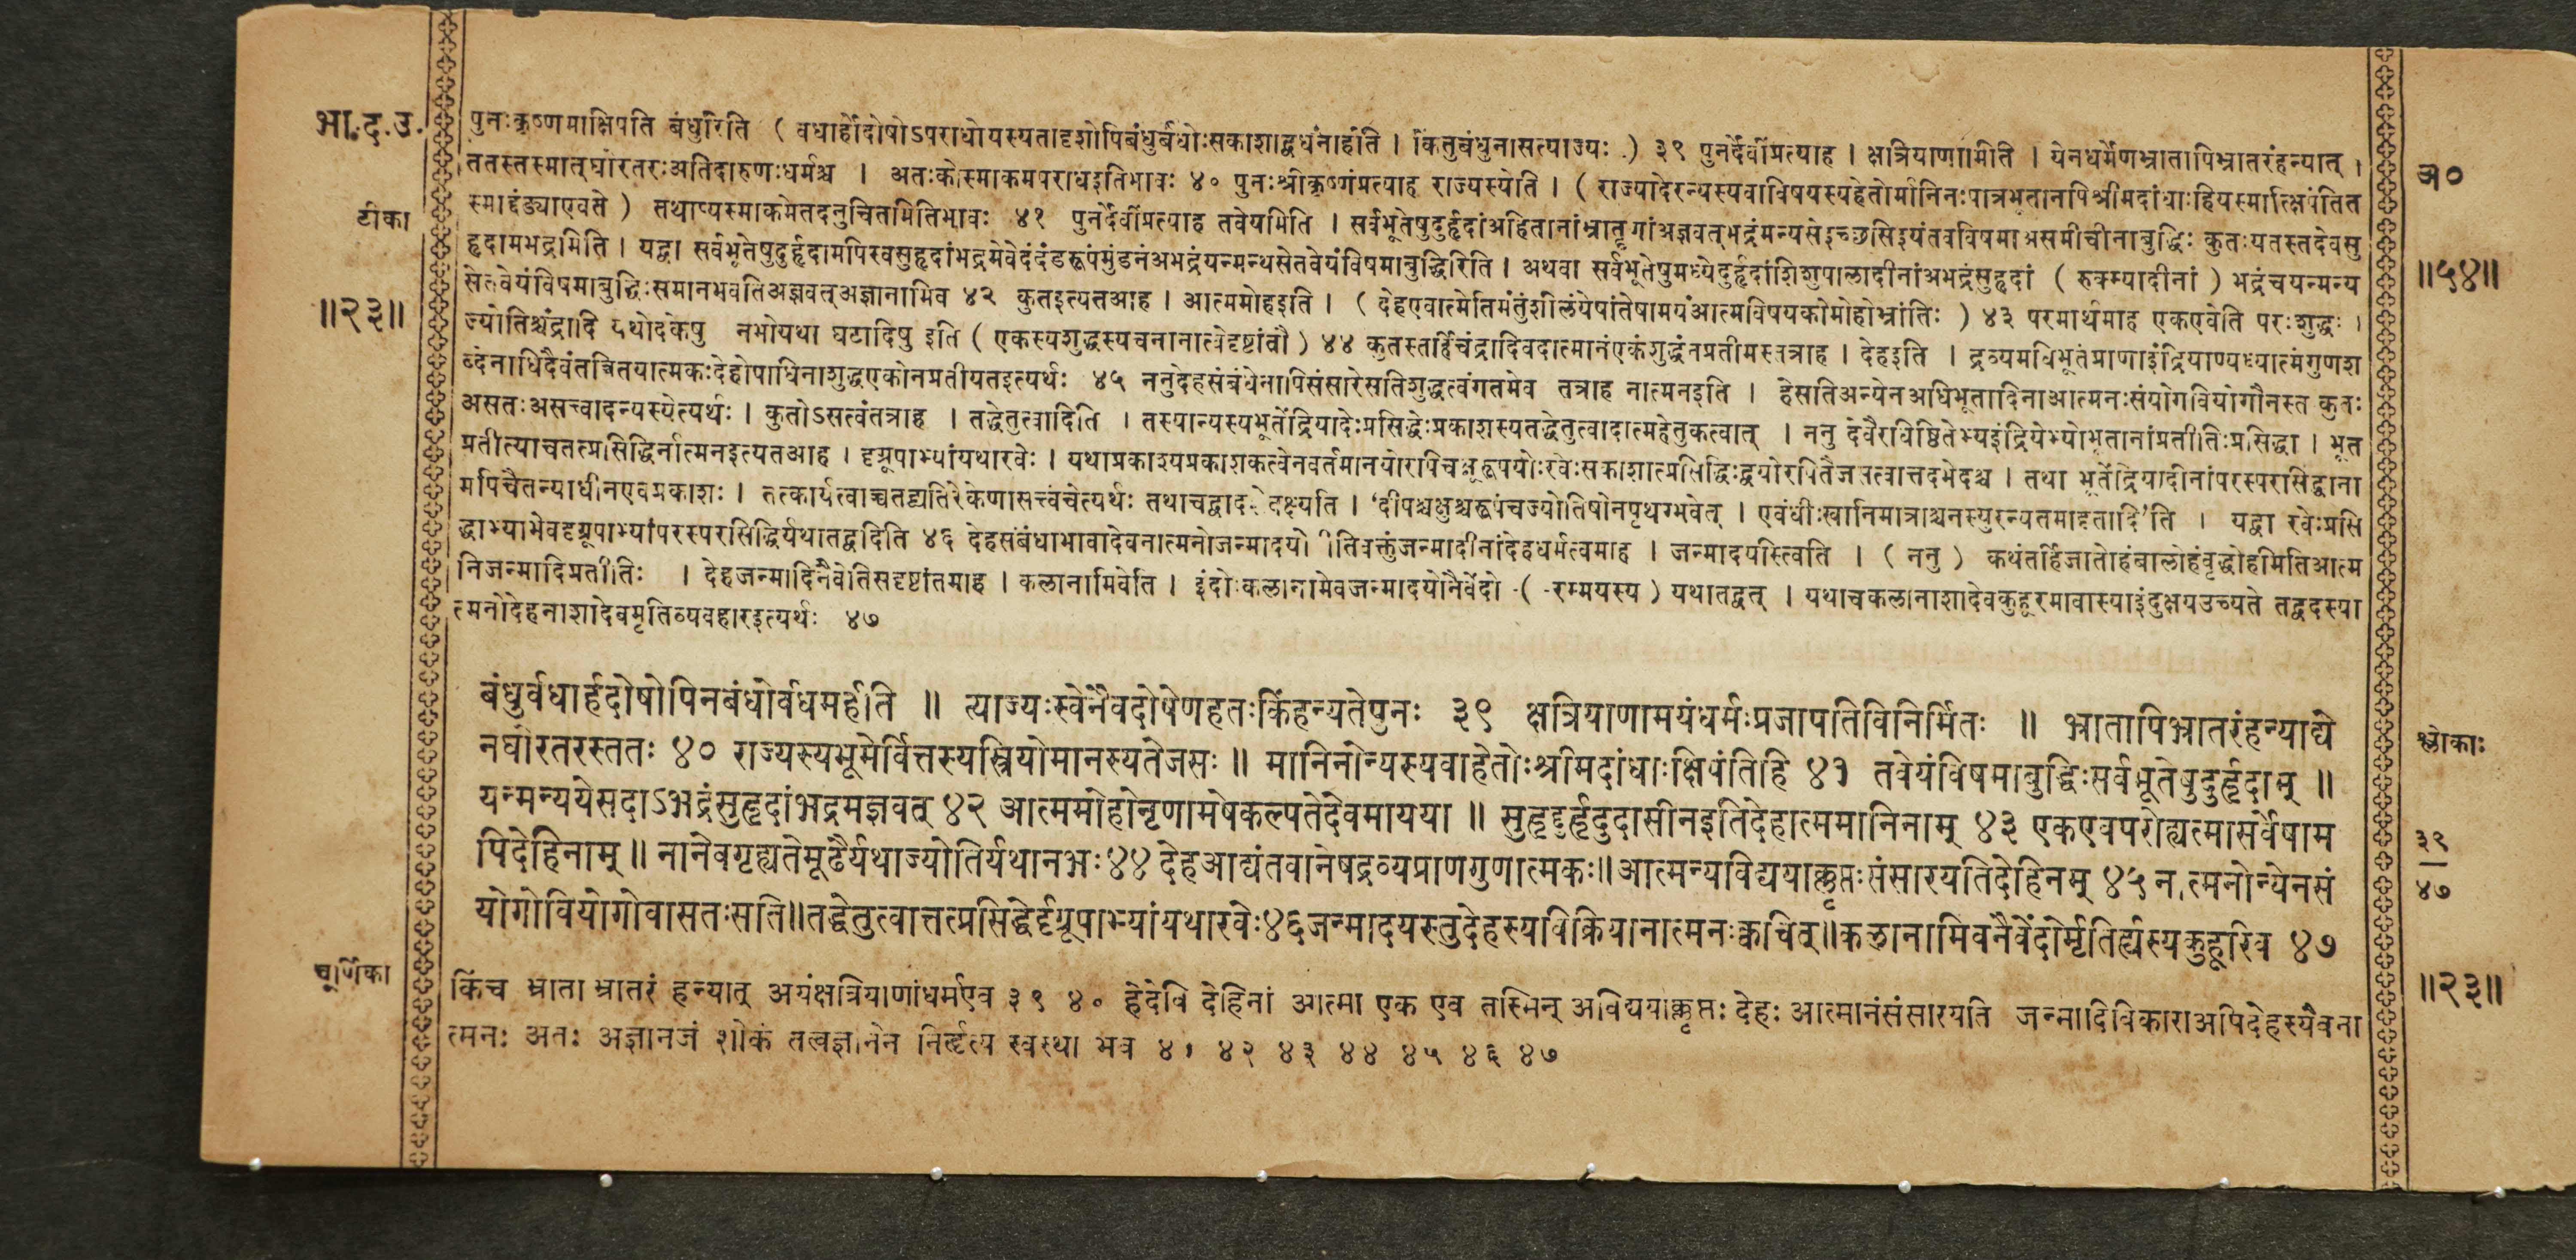 भा.द.उ.
टीका
॥२३॥
पुनःकृष्णमाक्षिपति बंधुरिति ( वधार्होदोषोऽपराधोयस्यतादृशोपिबंधुर्बंधोःसकाशाद्वधंनार्हति । किंतुबंधुनासत्याज्यः ) ३९ पुनर्देवींप्रत्याह । क्षत्रियाणामिति । येनधर्मेणभ्रातापिभ्रातरंहन्यात् ।
ततस्तस्मात्घोरतरःअतिदारुणःधर्मश्च । अतःकोस्माकमपराधइतिभावः ४० पुनःश्रीकृष्णंप्रत्याह राज्यस्येति । ( राज्यादेरन्यस्यवाविषयस्यहेतोर्मानिनःपात्रभूतानपिश्रीमदांधाःहियस्मात्क्षिपंतित
स्माद्दंड्याएवते ) तथाप्यस्माकमेतदनुचितमितिभावः ४१ पुनर्देवींप्रत्याह तवेयमिति । सर्वभूतेषुदुर्हृदांअहितानांभ्रातॄणांअज्ञवत्भद्रंमन्यसेइच्छसिइयंतवविषमाअसमीचीनाबुद्धिः कुतःयतस्तदेवसु
हृदामभद्रमिति । यद्वा सर्वभूतेषुदुर्हृदामपिस्वसुहृदांभद्रमेवेदंदंडरूपंमुंडनंअभद्रंयन्मन्यसेतवेयंविषमाबुद्धिरिति । अथवा सर्वभूतेषुमध्येदुर्हृदांशिशुपालादीनांअभद्रंसुहृदां ( रुक्म्यादीनां ) भद्रंचयन्मन्य
सेतवेयंविषमाबुद्धिःसमानभवतिअज्ञवत्अज्ञानामिव ४२ कुतइत्यतआह । आत्ममोहइति । ( देहएवात्मेतिमंतुंशीलंयेषांतेषामयंआत्मविषयकोमोहोभ्रांतिः ) ४३ परमार्थमाह एकएवेति परःशुद्धः ।
ज्योतिश्चंद्रादि यथोदकेषु नभोयथा घटादिषु इति ( एकस्यशुद्धस्यचनानात्वेदृष्टांतौ ) ४४ कुतस्तर्हिचंद्रादिवदात्मानंएकंशुद्धंनप्रतीमस्तत्राह । देहइति । द्रव्यमधिभूतंप्राणाइंद्रियाण्यध्यात्मंगुणश
ब्देनाधिदैवंतत्रितयात्मकःदेहोपाधिनाशुद्धएकोनप्रतीयतइत्यर्थः ४५ ननुदेहसंबंधेनापिसंसारेसतिशुद्धत्वंगतमेव तत्राह नात्मनइति । हेसतिअन्येनअधिभूतादिनाआत्मनःसंयोगवियोगौनस्त कुतः
असतःअसत्त्वादन्यस्येत्यर्थः । कुतोऽसत्वंतत्राह । तद्धेतुत्वादिति । तस्यान्यस्यभूतेंद्रियादेःप्रसिद्धेःप्रकाशस्यतद्धेतुत्वादात्महेतुकत्वात् । ननु देवैरधिष्ठितेभ्यइंद्रियेभ्योभूतानांप्रतीतिःप्रसिद्धा । भूत
प्रतीत्याचतत्प्रसिद्धिर्नात्मनइत्यतआह । दृग्रूपाभ्यांयथारवेः । यथाप्रकाश्यप्रकाशकत्वेनवर्तमानयोरपिचक्षूरूपयोःरवेःसकाशात्प्रसिद्धिःद्वयोरपितैजसत्वात्तदभेदश्च । तथा भूतेंद्रियादीनांपरस्परासिद्धाना
मपिचैतन्याधीनएवप्रकाशः । तत्कार्यत्वाच्चतद्व्यतिरेकेणासत्त्वंचेत्यर्थः तथाचद्वाद ेवक्ष्यति । ‘दीपश्चक्षुश्चरूपंचज्योतिषोनपृथग्भवेत् । एवंधीःखानिमात्राश्चनस्युरन्यतमादृतादि’ति । यद्वा रवेःप्रसि
द्धाभ्यामेवदृग्रूपाभ्यांपरस्परसिद्धिर्यथातद्वदिति ४६ देहसंबंधाभावादेवनात्मनोजन्मादयो ीतिवक्तुंजन्मादीनांदेहधर्मत्वमाह । जन्मादयस्त्विति । ( ननु ) कथंतर्हिजातोहंबालोहंवृद्धोहमितिआत्म
निजन्मादिप्रतीतिः । देहजन्मादिनैवेतिसदृष्टांतमाह । कलानामिवेति । इंदोःकलानामेवजन्मादयोनैवेंदो ( रम्मयस्य ) यथातद्वत् । यथाचकलानाशादेवकुहूरमावास्याइंदुक्षयउच्यते तद्वदस्या
त्मनोदेहनाशादेवमृतिव्यवहारइत्यर्थः ४७
अ०
॥५४॥
बंधुर्वधार्हदोषोपिनबंधोर्वधमर्हति ॥ त्याज्यःस्वेनैवदोषेणहतःकिंहन्यतेपुनः ३९ क्षत्रियाणामयंधर्मःप्रजापतिविनिर्मितः ॥ भ्रातापिभ्रातरंहन्याद्ये
नघोरतरस्ततः ४० राज्यस्यभूमेर्वित्तस्यस्त्रियोमानस्यतेजसः ॥ मानिनोन्यस्यवाहेतोःश्रीमदांधाःक्षिपंतिहि ४१ तवेयंविषमाबुद्धिःसर्वभूतेषुदुर्हृदाम् ॥
यन्मन्ययेसदाऽभद्रंसुहृदांभद्रमज्ञवत् ४२ आत्ममोहोनृणामेषकल्पतेदेवमायया ॥ सुहृद्दुर्हृदुदासीनइतिदेहात्ममानिनाम् ४३ एकएवपरोह्यात्मासर्वेषाम
पिदेहिनाम् ॥ नानेवगृह्यतेमूढैर्यथाज्योतिर्यथानभः४४ देहआद्यंतवानेषद्रव्यप्राणगुणात्मकः॥आत्मन्यविद्ययाक्लृप्तःसंसारयतिदेहिनम् ४५ नात्मनोन्येनसं
योगोवियोगोवासतःसति॥तद्धेतुत्वात्तत्प्रसिद्धेर्दृग्रूपाभ्यांयथारवेः४६जन्मादयस्तुदेहस्यविक्रियानात्मनःक्वचित्॥कलानामिवनैवेंदोर्मृतिर्ह्यस्यकुहूरिव ४७
श्लोकाः
३९
४७
चूर्णिका
किंच भ्राता भ्रातरं हन्यात् अयंक्षत्रियाणांधर्मएव ३९ ४० हेदेवि देहिनां आत्मा एक एव तस्मिन् अविद्ययाक्लृप्तः देहः आत्मानंसंसारयति जन्मादिविकाराअपिदेहस्यैवना
त्मनः अतः अज्ञानजं शोकं तत्वज्ञानेन निर्हृत्य स्वस्था भव ४१ ४२ ४३ ४४ ४५ ४६ ४७
॥२३॥